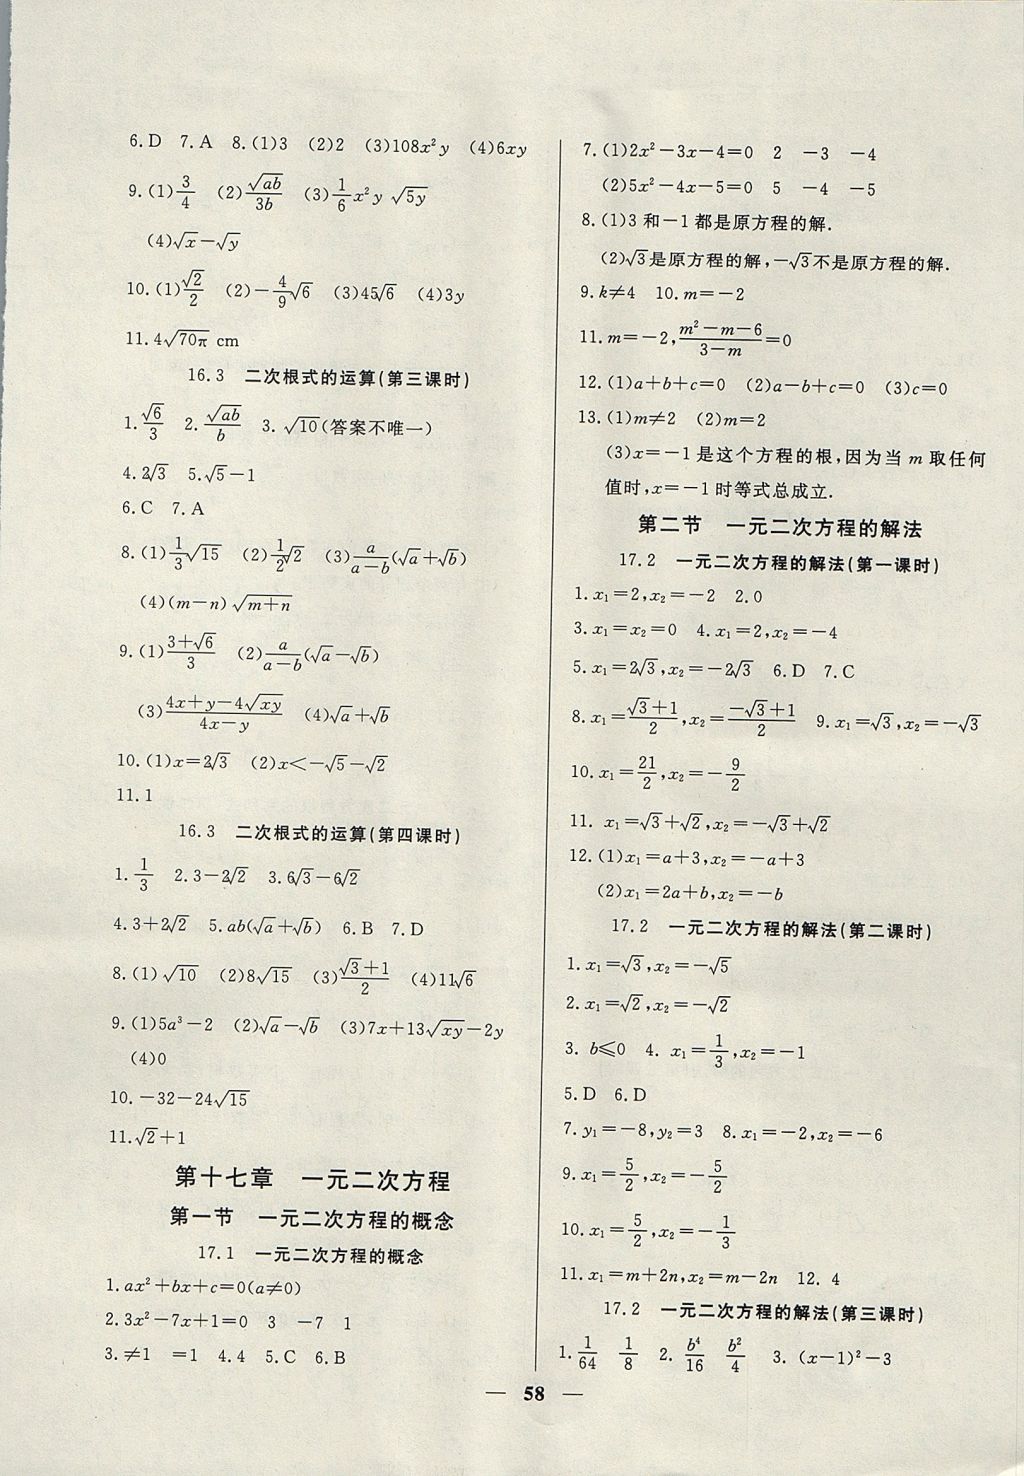 6.D 7.A 8.(1)3 (2)2 (3)108x²y (4)6xy
9.(1)3/4 (2)√ab/3b (3)1/6x²y√5y
(4)√x−√y
10.(1)√2/2 (2)−4/9√6 (3)45√6 (4)3y
11.4√70π cm
16.3 二次根式的运算(第三课时)
1.√6/3 2.√ab/b 3.√10(答案不唯一)
4.2√3 5.√5−1
6.C 7.A
8.(1)1/3√15 (2)1/2√2 (3)a/(a−b)(√a+√b)
(4)(m−n)√(m+n)
9.(1)(3+√6)/3 (2)a/(a−b)(√a−√b)
(3)(4x+y−4√xy)/(4x−y) (4)√a+√b
10.(1)x=2√3 (2)x<−√5−√2
11.1
16.3 二次根式的运算(第四课时)
1.1/3 2.3−2√2 3.6√3−6√2
4.3+2√2 5.ab(√a+√b) 6.B 7.D
8.(1)√10 (2)8√15 (3)(√3+1)/2 (4)11√6
9.(1)5a³−2 (2)√a−√b (3)7x+13√xy−2y
(4)0
10.−32−24√15
11.√2+1
第十七章 一元二次方程
第一节 一元二次方程的概念
17.1 一元二次方程的概念
1.ax²+bx+c=0(a≠0)
2.3x²−7x+1=0 3 −7 1
3.≠1 =1 4.4 5.C 6.B
7.(1)2x²−3x−4=0 2 −3 −4
(2)5x²−4x−5=0 5 −4 −5
8.(1)3和−1都是原方程的解.
(2)√3是原方程的解,−√3不是原方程的解.
9.k≠4 10.m=−2
11.m=−2,(m²−m−6)/(3−m)=0
12.(1)a+b+c=0 (2)a−b+c=0 (3)c=0
13.(1)m≠2 (2)m=2
(3)x=−1是这个方程的根,因为当m取任何
值时,x=−1时等式总成立.
第二节 一元二次方程的解法
17.2 一元二次方程的解法(第一课时)
1.x₁=2,x₂=−2 2.0
3.x₁=x₂=0 4.x₁=2,x₂=−4
5.x₁=2√3,x₂=−2√3 6.D 7.C
8.x₁=(√3+1)/2,x₂=(−√3+1)/2 9.x₁=√3,x₂=−√3
10.x₁=21/2,x₂=−9/2
11.x₁=√3+√2,x₂=−√3+√2
12.(1)x₁=a+3,x₂=−a+3
(2)x₁=2a+b,x₂=−b
17.2 一元二次方程的解法(第二课时)
1.x₁=√3,x₂=−√5
2.x₁=√2,x₂=−√2
3.b≤0 4.x₁=1/3,x₂=−1
5.D 6.D
7.y₁=−8,y₂=3 8.x₁=−2,x₂=−6
9.x₁=5/2,x₂=−5/2
10.x₁=5/2,x₂=−1/3
11.x₁=m+2n,x₂=m−2n 12.4
17.2 一元二次方程的解法(第三课时)
1.1/64 1/8 2.b⁴/16 b²/4 3.(x−1)²−3
— 58 —